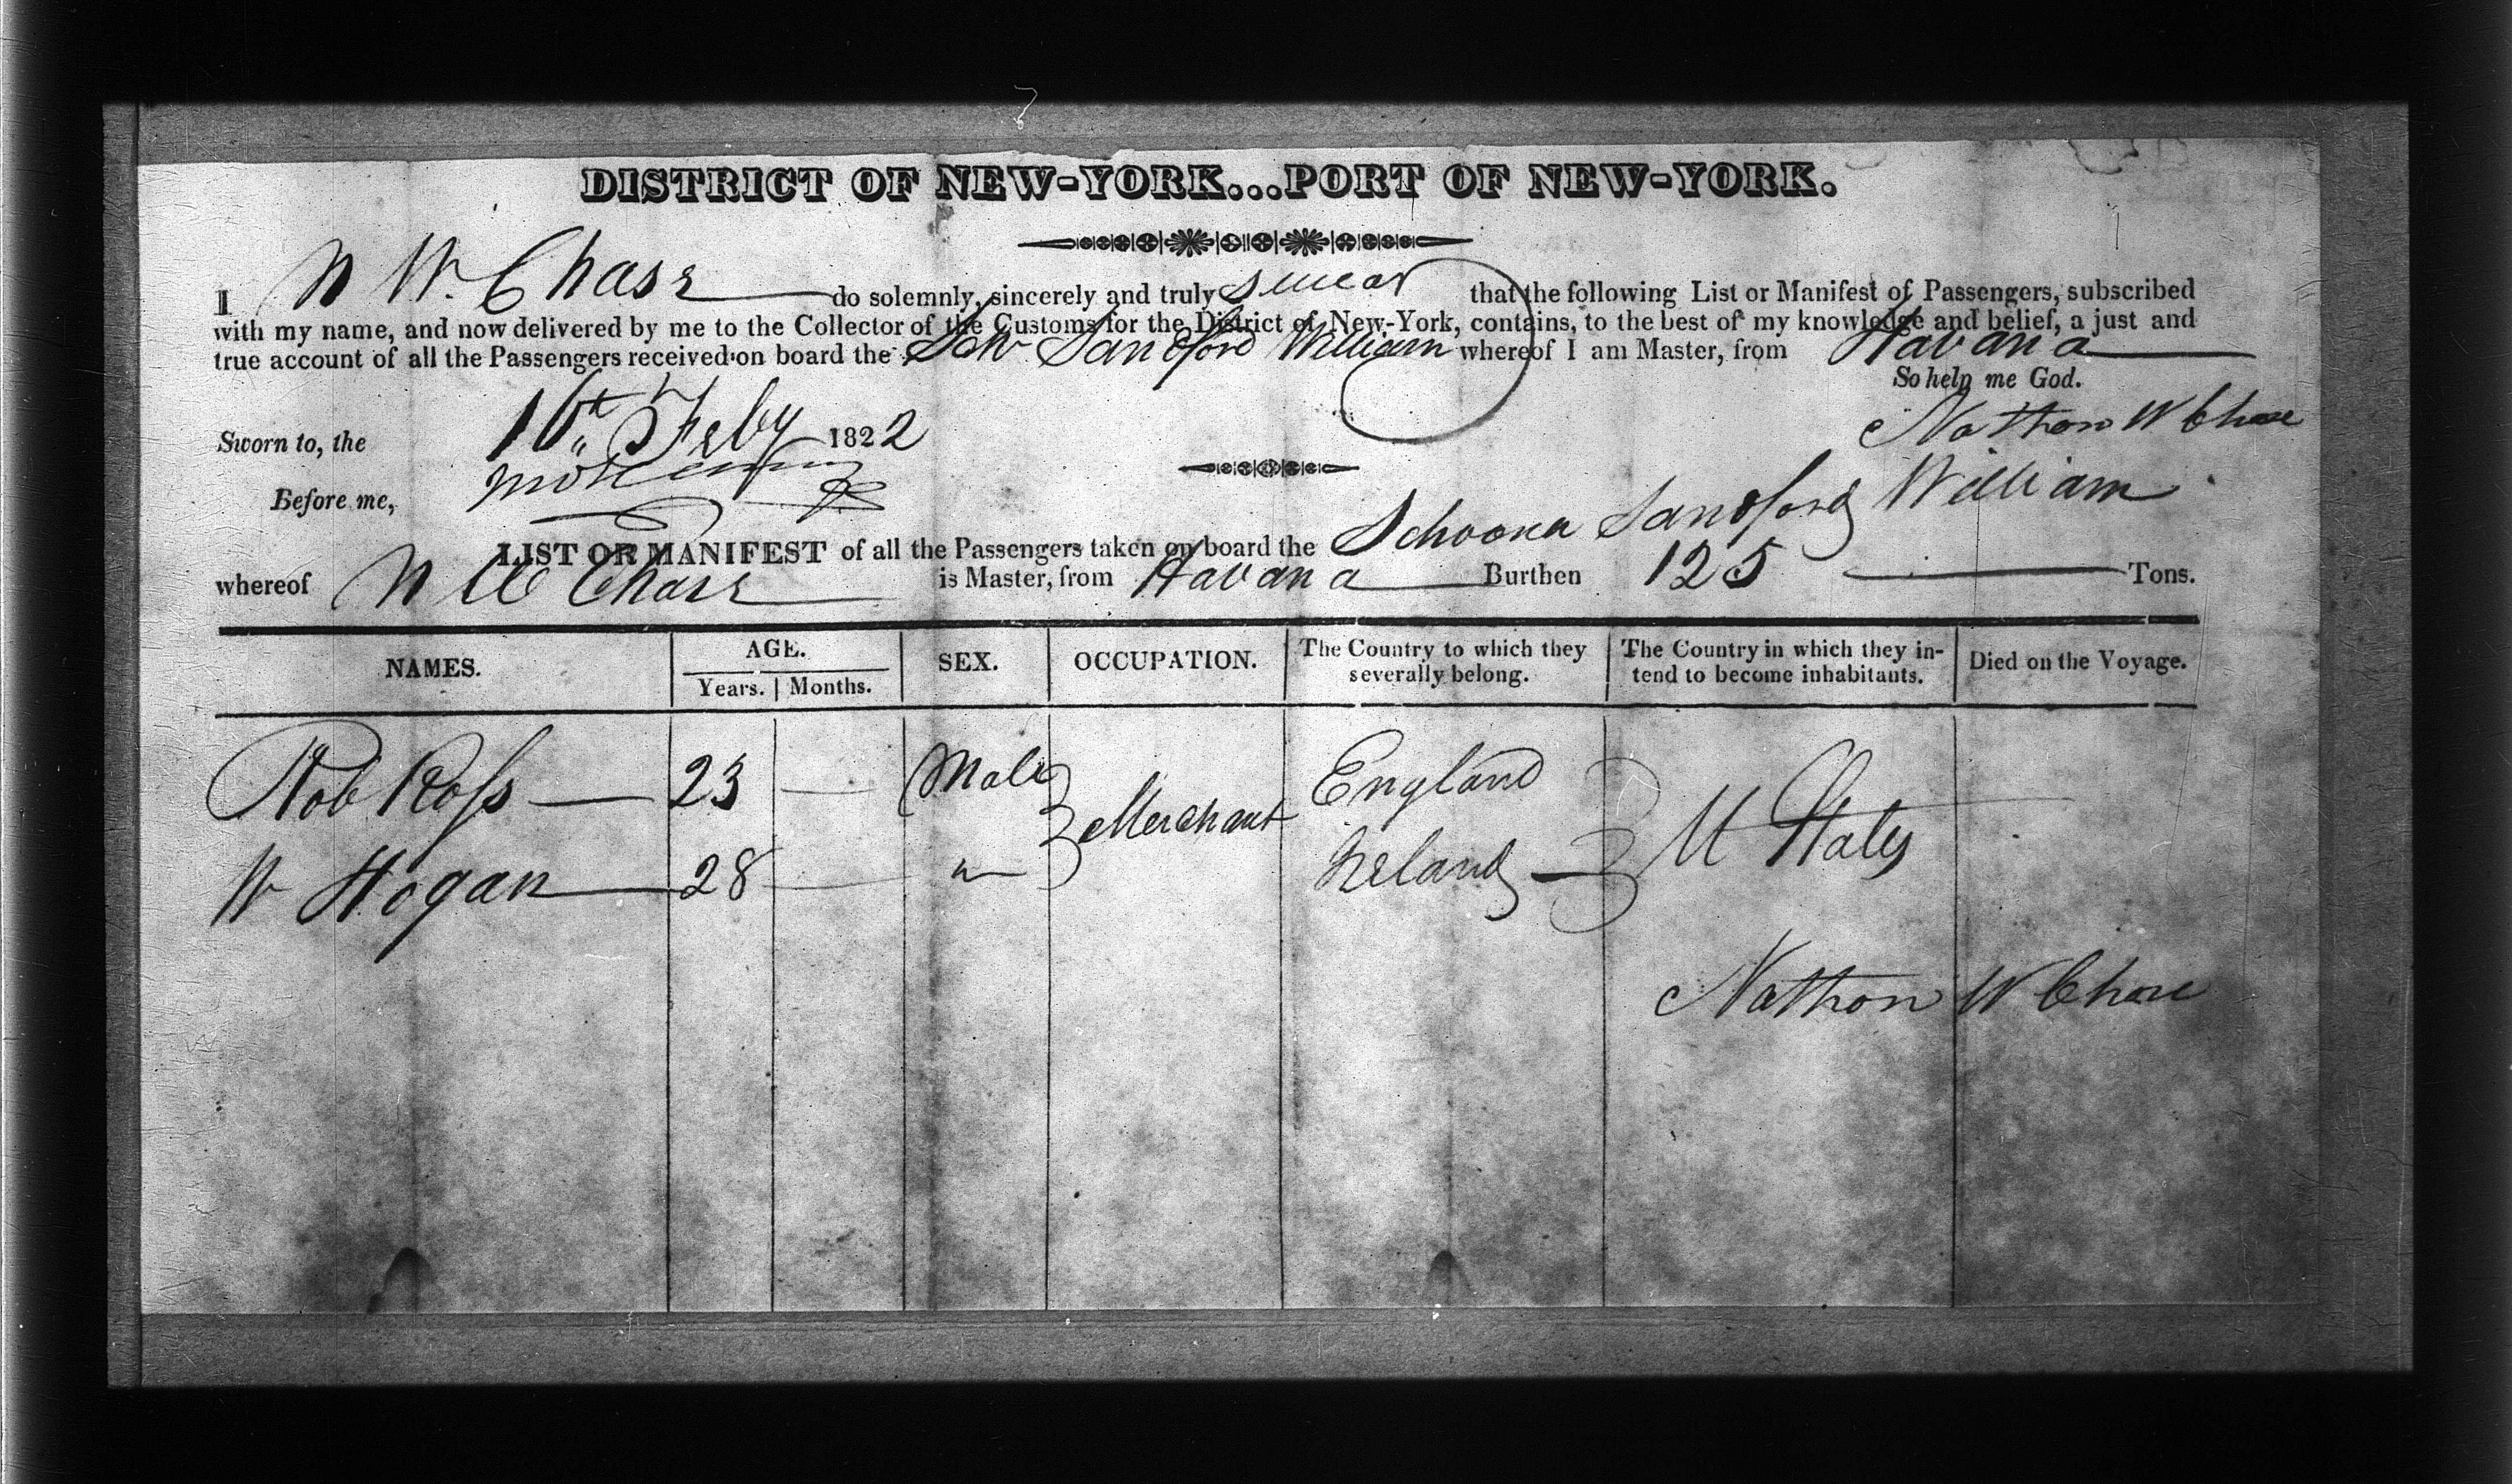 DISTRICT OF NEW-YORK...PORT OF NEW-YORK.
I N W. Chase do solemnly, sincerely and truly swear that the following List or Manifest of Passengers, subscribed
with my name, and now delivered by me to the Collector of the Customs for the District of New-York, contains, to the best of my knowledge and belief, a just and
true account of all the Passengers received on board the Schr Sandford William whereof I am Master, from Havana
So help me God.
Sworn to, the 16th Feby 1822
Nathan W Chase
Before me,
LIST OR MANIFEST of all the Passengers taken on board the Schooner Sandford William
whereof N W Chase is Master, from Havana Burthen 125 Tons.
NAMES. AGE. Years. Months. SEX. OCCUPATION. The Country to which they severally belong. The Country in which they intend to become inhabitants. Died on the Voyage.
Rob Ross 23 Male Merchant England U States
W Hogan 28 " Ireland
Nathan W Chase